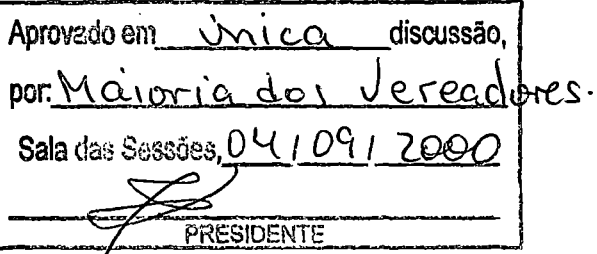 Aprovado em única discussão,
por: Maioria dos Vereadores.
Sala das Sessões, 04/09/2000
PRESIDENTE